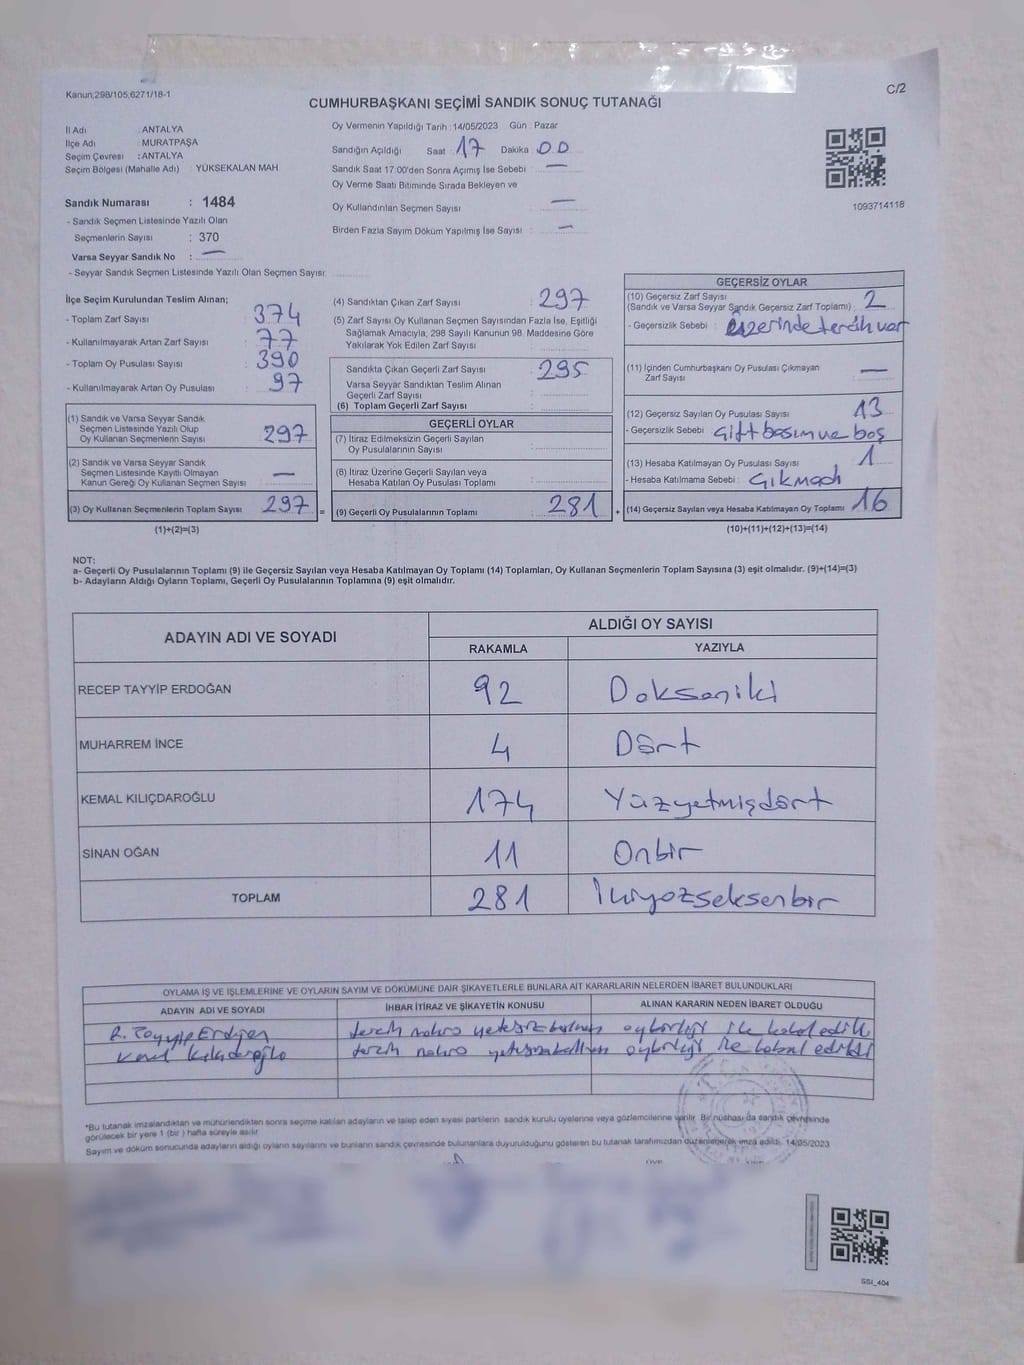 Kanun:298/105;6271/18-1
C/2
CUMHURBAŞKANI SEÇİMİ SANDIK SONUÇ TUTANAĞI
İl Adı : ANTALYA
İlçe Adı : MURATPAŞA
Seçim Çevresi : ANTALYA
Seçim Bölgesi (Mahalle Adı) : YÜKSEKALAN MAH
Sandık Numarası : 1484
- Sandık Seçmen Listesinde Yazılı Olan
Seçmenlerin Sayısı : 370
Varsa Seyyar Sandık No : —
- Seyyar Sandık Seçmen Listesinde Yazılı Olan Seçmen Sayısı:
Oy Vermenin Yapıldığı Tarih : 14/05/2023 Gün : Pazar
Sandığın Açıldığı Saat : 17 Dakika : 00
Sandık Saat 17:00'den Sonra Açımış İse Sebebi : —
Oy Verme Saati Bitiminde Sırada Bekleyen ve
Oy Kullandırılan Seçmen Sayısı : —
Birden Fazla Sayım Döküm Yapılmış İse Sayısı : —
1093714118
İlçe Seçim Kurulundan Teslim Alınan;
- Toplam Zarf Sayısı : 374
- Kullanılmayarak Artan Zarf Sayısı : 77
- Toplam Oy Pusulası Sayısı : 390
- Kullanılmayarak Artan Oy Pusulası : 97
(1) Sandık ve Varsa Seyyar Sandık
Seçmen Listesinde Yazılı Olup
Oy Kullanan Seçmenlerin Sayısı 297
(2) Sandık ve Varsa Seyyar Sandık
Seçmen Listesinde Kayıtlı Olmayan
Kanun Gereği Oy Kullanan Seçmen Sayısı : —
(3) Oy Kullanan Seçmenlerin Toplam Sayısı 297 =
(1)+(2)=(3)
(4) Sandıktan Çıkan Zarf Sayısı : 297
(5) Zarf Sayısı, Oy Kullanan Seçmen Sayısından Fazla İse, Eşitliği
Sağlamak Amacıyla, 298 Sayılı Kanunun 98. Maddesine Göre
Yakılarak Yok Edilen Zarf Sayısı :
Sandıkta Çıkan Geçerli Zarf Sayısı : 295
Varsa Seyyar Sandıktan Teslim Alınan
Geçerli Zarf Sayısı :
(6) Toplam Geçerli Zarf Sayısı :
GEÇERLİ OYLAR
(7) İtiraz Edilmeksizin Geçerli Sayılan
Oy Pusulalarının Sayısı :
(8) İtiraz Üzerine Geçerli Sayılan veya
Hesaba Katılan Oy Pusulası Toplamı :
(9) Geçerli Oy Pusulalarının Toplamı : 281 +
GEÇERSİZ OYLAR
(10) Geçersiz Zarf Sayısı
(Sandık ve Varsa Seyyar Sandık Geçersiz Zarf Toplamı) : 2
- Geçersizlik Sebebi : üzerinde tercih var
(11) İçinden Cumhurbaşkanı Oy Pusulası Çıkmayan
Zarf Sayısı : —
(12) Geçersiz Sayılan Oy Pusulası Sayısı : 13
- Geçersizlik Sebebi : Çift basım ve boş
(13) Hesaba Katılmayan Oy Pusulası Sayısı : 1
- Hesaba Katılmama Sebebi : Çıkmadı
(14) Geçersiz Sayılan veya Hesaba Katılmayan Oy Toplamı : 16
(10)+(11)+(12)+(13)=(14)
NOT:
a- Geçerli Oy Pusulalarının Toplamı (9) ile Geçersiz Sayılan veya Hesaba Katılmayan Oy Toplamı (14) Toplamları, Oy Kullanan Seçmenlerin Toplam Sayısına (3) eşit olmalıdır. (9)+(14)=(3)
b- Adayların Aldığı Oyların Toplamı, Geçerli Oy Pusulalarının Toplamına (9) eşit olmalıdır.
ADAYIN ADI VE SOYADI
ALDIĞI OY SAYISI
RAKAMLA YAZIYLA
RECEP TAYYİP ERDOĞAN 92 Doksaniki
MUHARREM İNCE 4 Dört
KEMAL KILIÇDAROĞLU 174 Yüzyetmişdört
SİNAN OĞAN 11 Onbir
TOPLAM 281 İkiyüzseksenbir
OYLAMA İŞ VE İŞLEMLERİNE VE OYLARIN SAYIM VE DÖKÜMÜNE DAİR ŞİKAYETLERLE BUNLARA AİT KARARLARIN NELERDEN İBARET BULUNDUKLARI
ADAYIN ADI VE SOYADI İHBAR İTİRAZ VE ŞİKAYETİN KONUSU ALINAN KARARIN NEDEN İBARET OLDUĞU
R. Tayyip Erdoğan tercih mührü oybirliği ile kabul edildi
Kemal Kılıçdaroğlu tercih mührü oybirliği ile kabul edildi
*Bu tutanak imzalandıktan ve mühürlendikten sonra seçime katılan adayların ve talep eden siyasi partilerin sandık kurulu üyelerine veya gözlemcilerine verilir. Bir nüshası da sandık çevresinde
görülecek bir yere 1 (bir) hafta süreyle asılır.
Sayım ve döküm sonucunda adayların aldığı oyların sayılarını ve bunların sandık çevresinde bulunanlara duyurulduğunu gösteren bu tutanak tarafımızdan düzenlenerek imza edildi. 14/05/2023
SSI_404